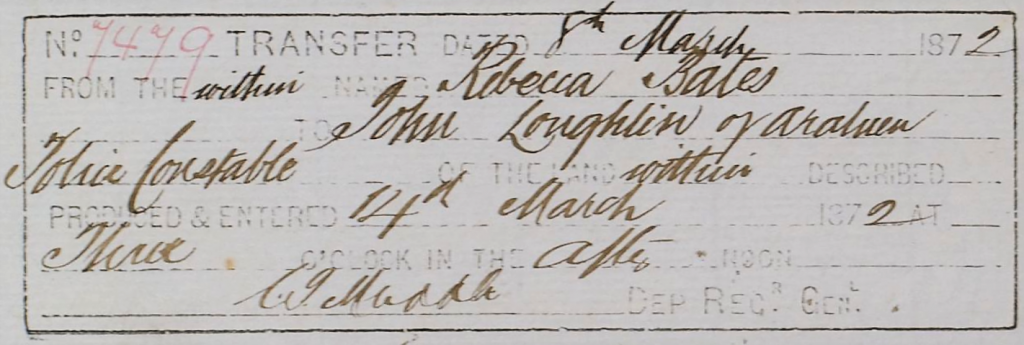 No. 7479 TRANSFER DATED 8th March 1872
FROM THE within NAMED Rebecca Bates
TO John Loughlin of Araluen
Police Constable OF THE LAND within DESCRIBED
PRODUCED & ENTERED 14th March 1872 AT
Three O'CLOCK IN THE After NOON
DEP REGR. GENL.